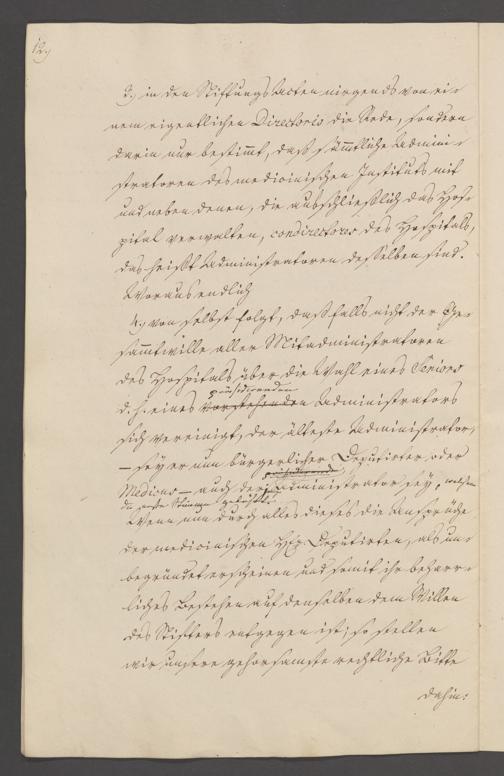 12,
3., in den Stiftungs Acten nirgends von ei-
nem eigentlichen Directorio die Rede, sondern
darin nur bestimt, daß sämtliche Admini-
stratoren des medicinischen Instituts mit
und neben denen, die ausschließlich das Hos-
pital verwalten, condirectores des Hospitals,
das heißt Administratoren desselben sind.
Woraus endlich
4., von selbst folgt, daß falls nicht der Ge-
samtwille aller Mitadministratoren
des Hospitals über die Wahl eines Seniors
präsidirenden
d. h. eines vorstehenden Administrators
sich vereinigt, der älteste Administrator,
– sey er nun bürgerlicher Deputirter oder
präsidirende
Medicus – auch der Administrator sey, welchem
die erste Stimme gebührt.
Wenn nun durch alles dieses die Ansprüche
der medicinischen Hh. Deputirten, als un-
begründet erscheinen und somit ihr beharr-
liches Bestehen auf denselben dem Willen
des Stifters entgegen ist; so stellen
wir unsere gehorsamste rechtliche Bitte
dahin: